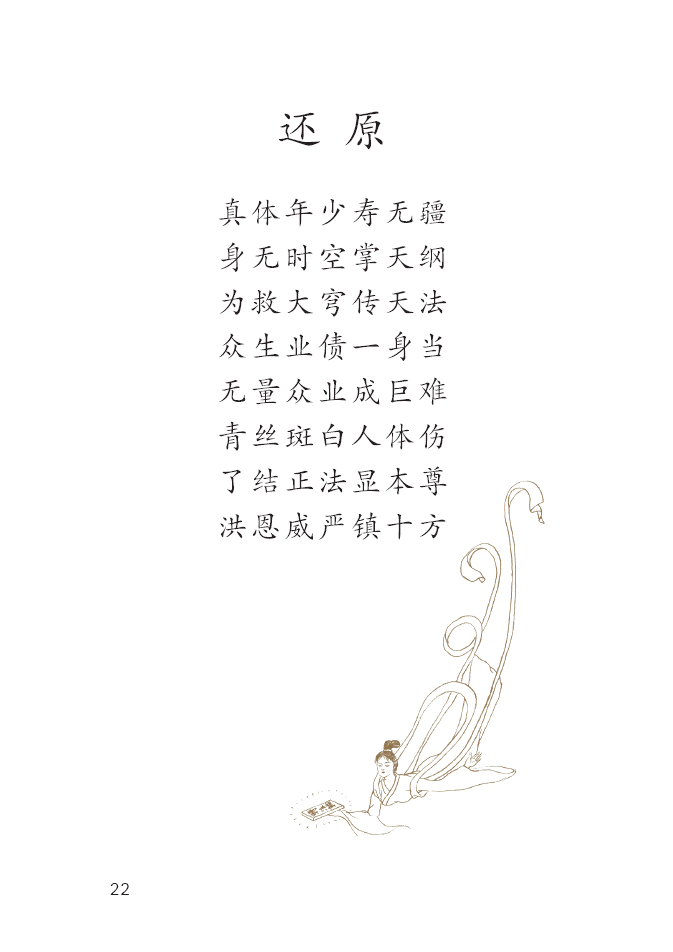 还原
真体年少寿无疆
身无时空掌天纲
为救大穹传天法
众生业债一身当
无量众业成巨难
青丝斑白人体伤
了结正法显本尊
洪恩威严镇十方
22